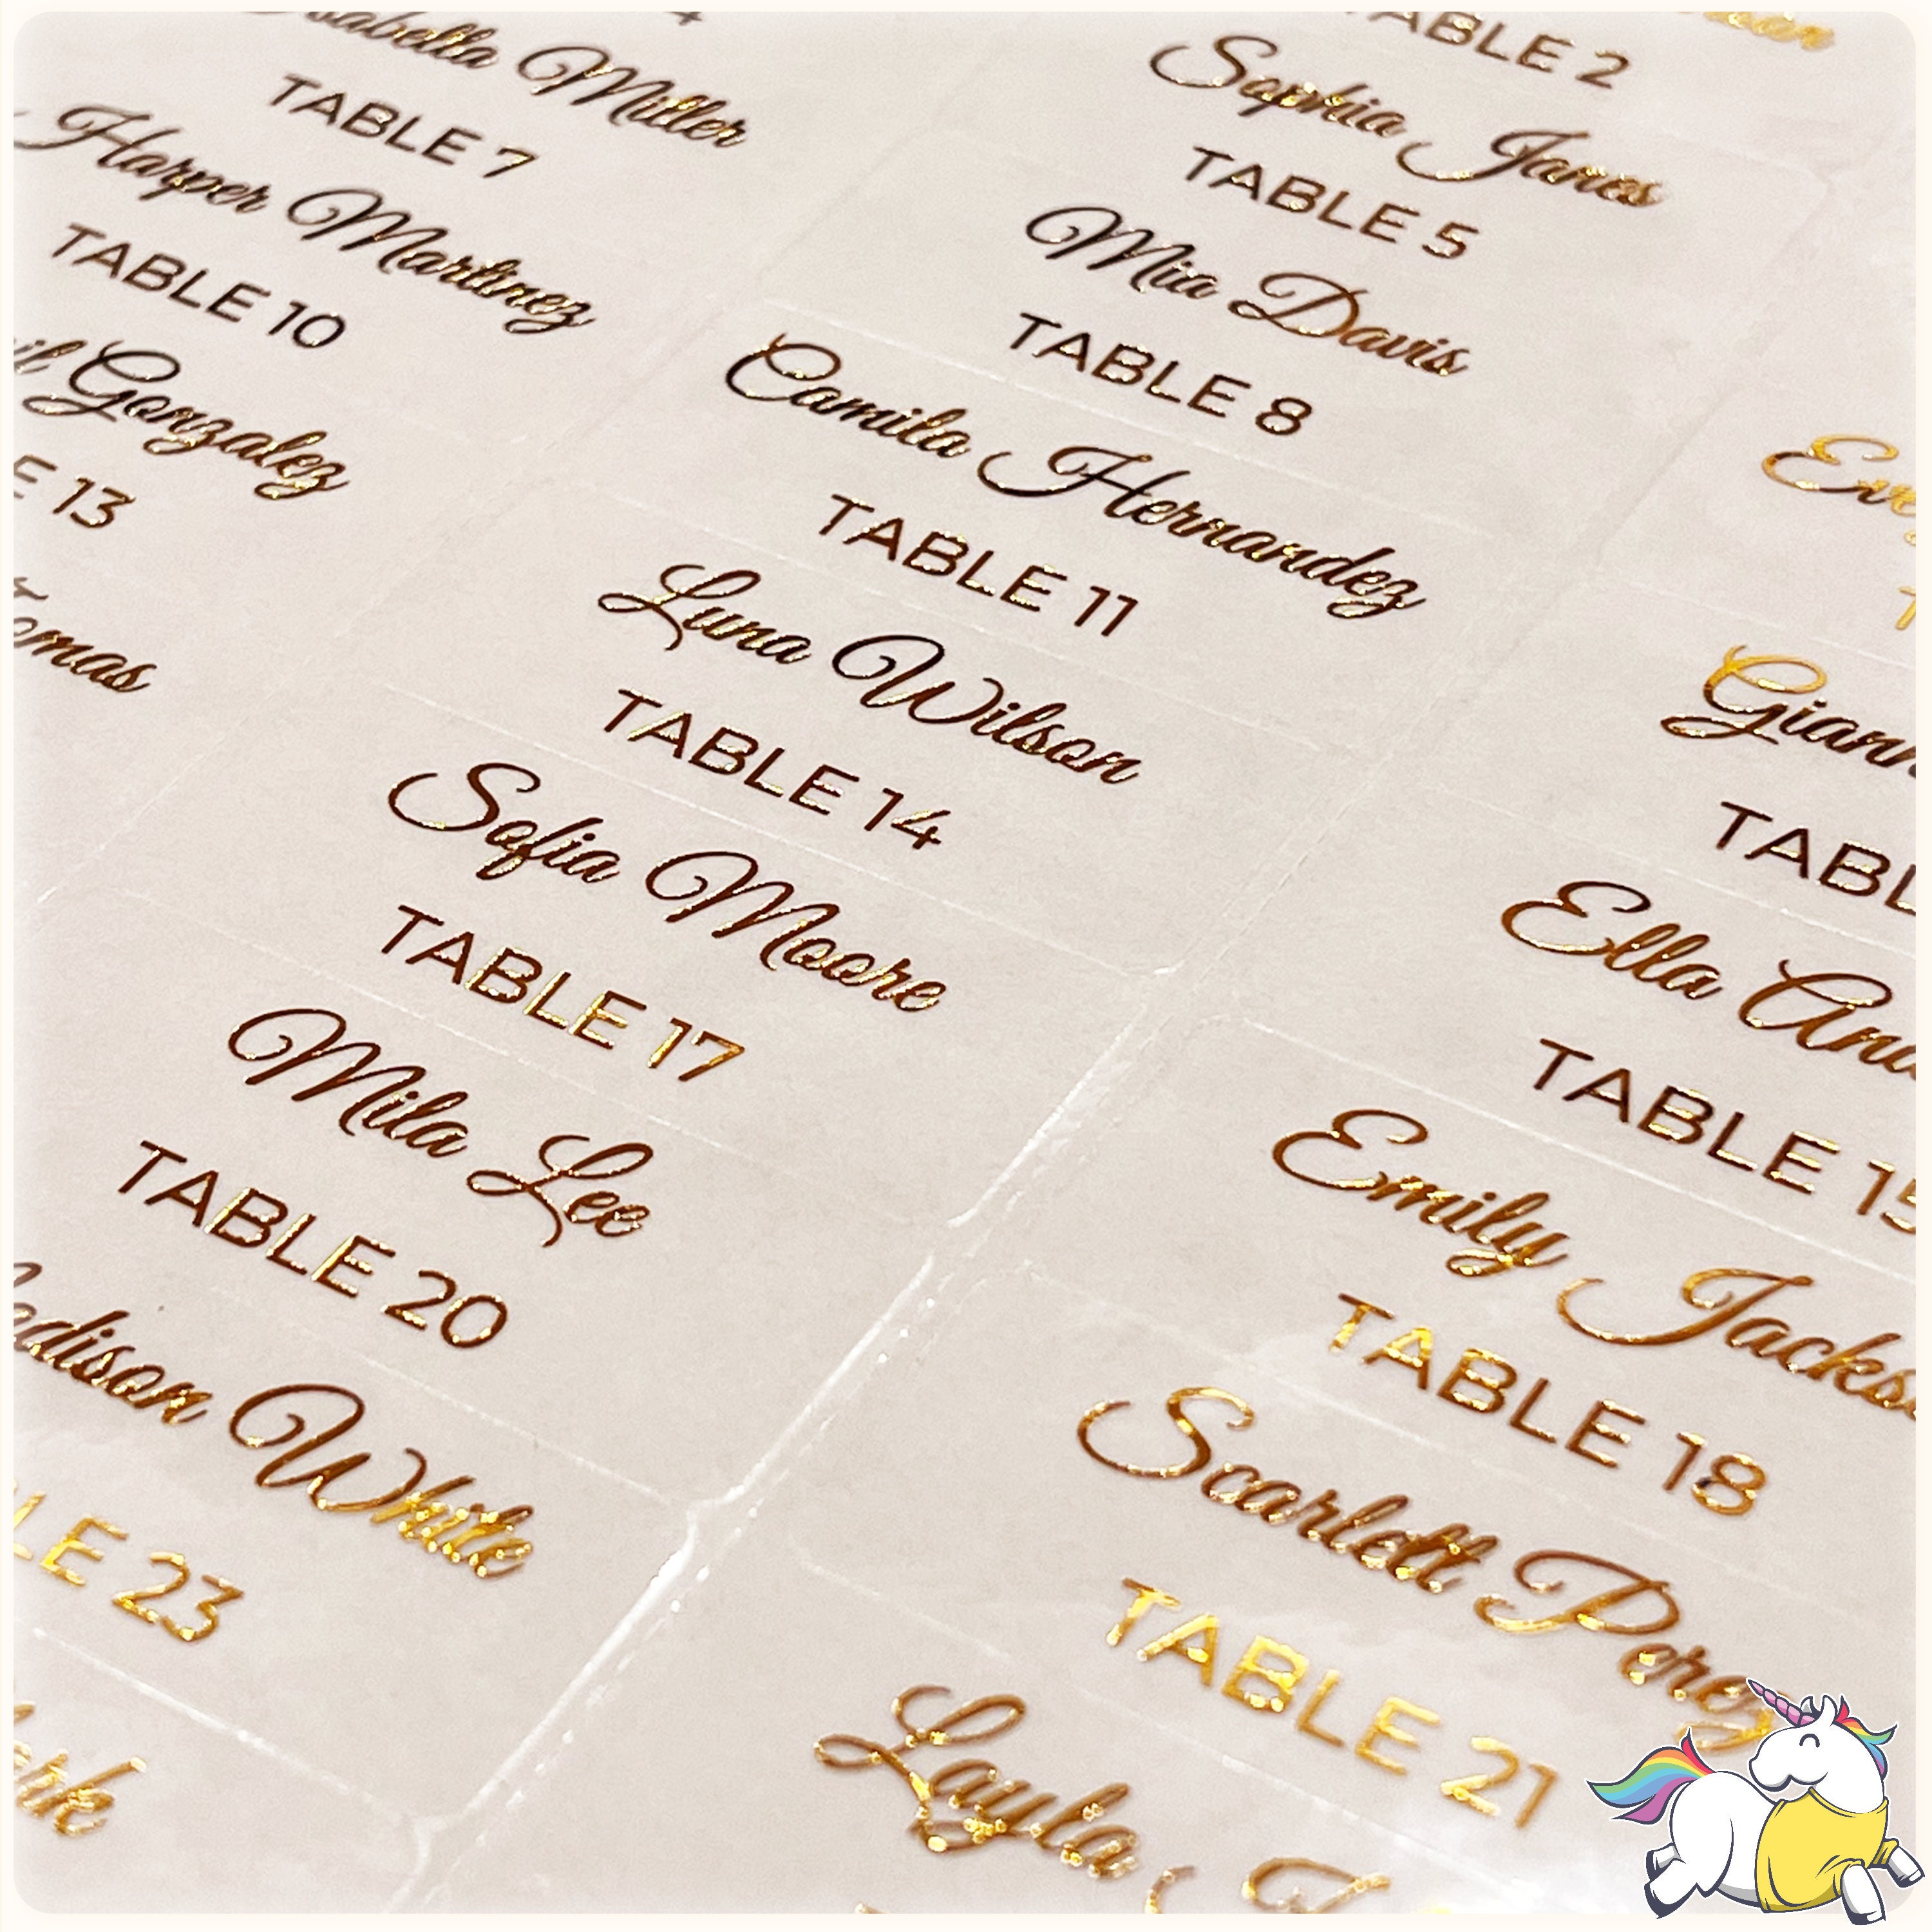 Isabella Miller
TABLE 7
Harper Martinez
TABLE 10
Gonzalez
13
Tomas
TABLE 2
Sophia Jones
TABLE 5
Mia Davis
TABLE 8
Camila Hernandez
TABLE 11
Luna Wilson
TABLE 14
Sofia Moore
TABLE 17
Mila Lee
TABLE 20
Madison White
TABLE 23
Ella
TABLE 15
Emily Jackson
TABLE 18
Scarlett Perez
TABLE 21
Layla